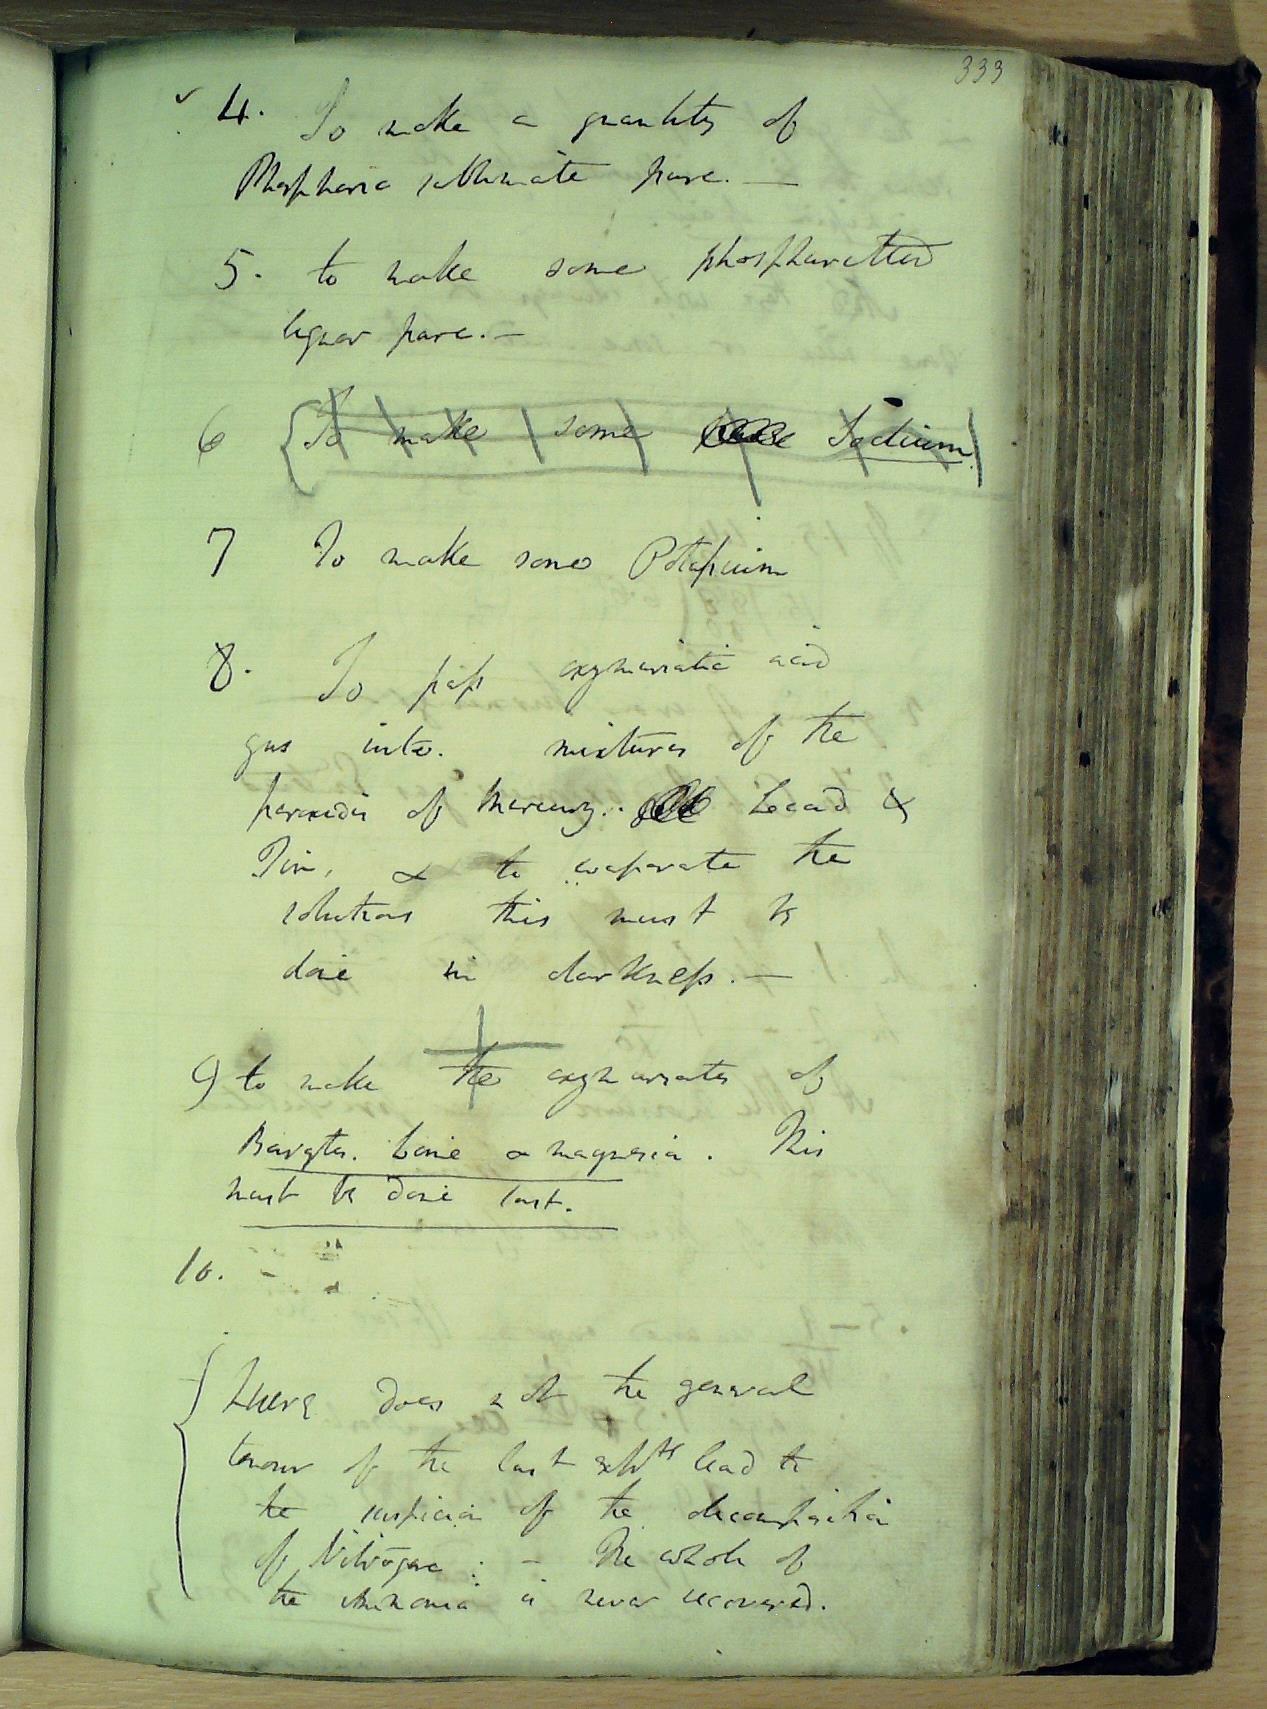 333
4. To make a quantity of
Phosphoric sublimate pure. —
5. to make some phosphuretted
liquor pure. —
6 To make some Sodium
7 To make some Potassium
8. To pass oxymuriatic acid
gas into. mixtures of the
peroxides of Mercury. Lead &
Tin, & to evaporate the
solutions this must be
done in darkness. —
9 to make the oxymuriates of
Barytes. Lime & magnesia. This
must be done last.
10. –
Query Does not the general
tenour of the last expts lead to
the suspicion of the decomposition
of Nitrogene : – The whole of
the ammonia is never recovered.